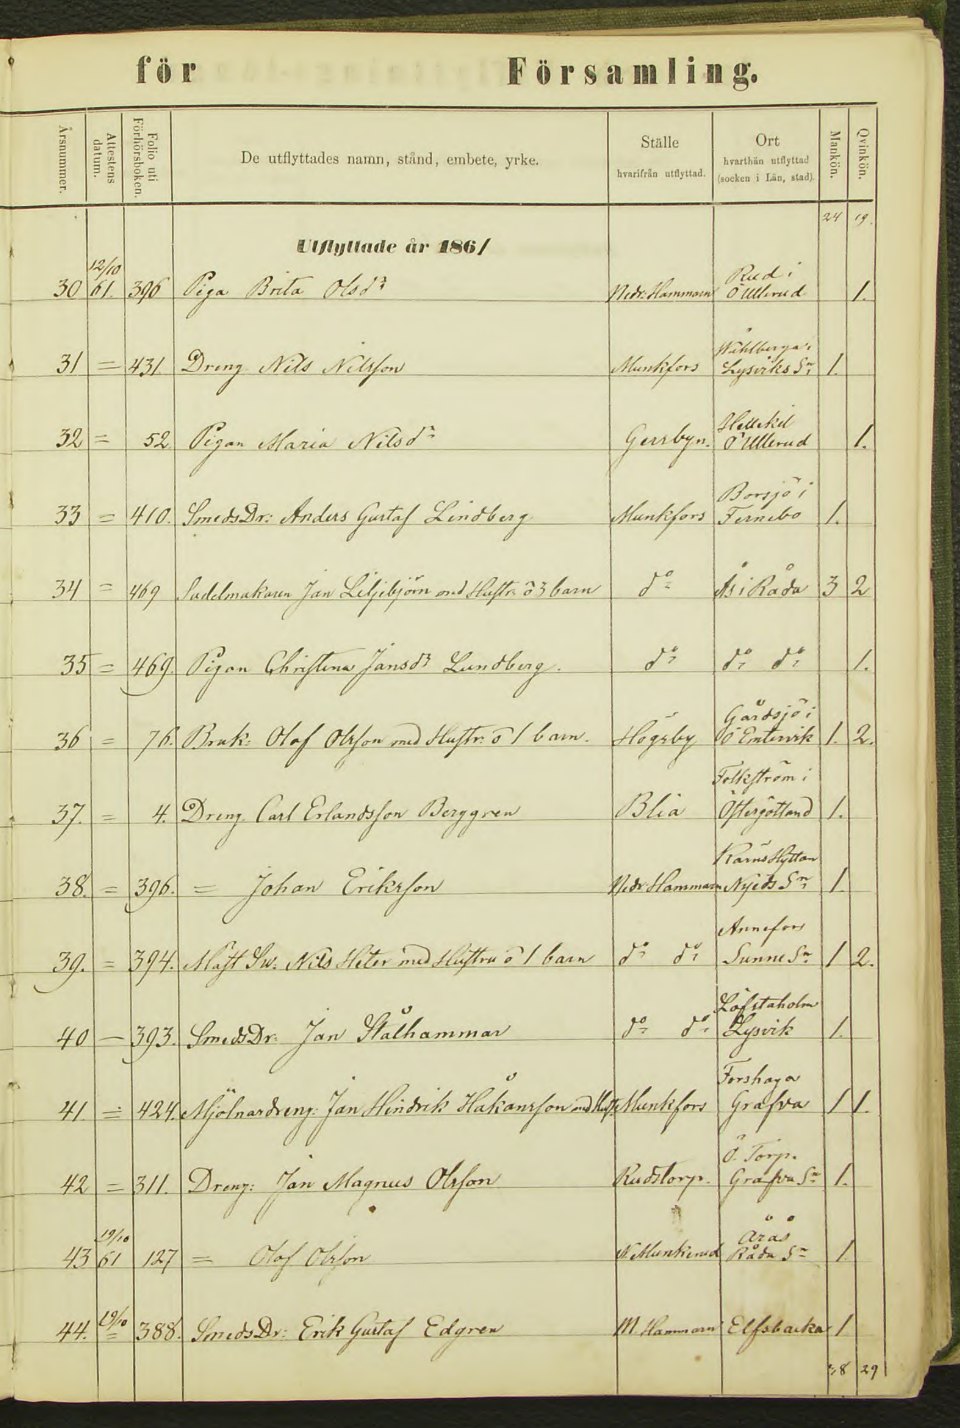 för Församling.
Årsnummer. Attestens datum. Folio uti Förhörsboken. De utflyttades namn, stånd, embete, yrke. Ställe hvarifrån utflyttad. Ort hvarthän utflyttad (socken i Län, stad). Mankön. Qvinkön.
24 19.
Utflyttade år 1861
12/10 Rud i
30 61. 396 Piga Brita Olsdr Nedr: Hammarn Ö Ullerud 1.
Wåhlberga i
31 = 431. Dreng Nils Nilsson Munkfors Lysviks Sn 1.
Hellekil
32 = 52. Pigan Maria Nilsdr Gersbyn. Ö Ullerud 1.
Borsjö i
33 = 410. SmedsDr: Anders Gustaf Lindberg Munkfors Fernebo 1.
34 = 469 Sadelmakaren Jan Liljebjörn med Hustr. o 3 barn do Ås i Råda 3 2
35 = 469. Pigan Christina Jansdr Lundberg. do do do 1.
Gårdsjö i
36 = 76. Bruk: Olof Olsson med Hustr: o 1 barn. Högsby Ö Emtervik 1. 2.
Folkström i
37. = 4. Dreng Carl Erlandsson Berggren Blia Östergötland 1.
Hyttan
38. = 396. = Johan Eriksson Nedr: Hammarn Nyeds Sn 1.
Annefors
39. = 394. Mäst Sm. Nils Heter med Hustru o 1 barn do do Sunne Sn 1 2.
Löfstaholm
40 — 393. SmedsDr: Jan Stålhammar do do Lysvik 1.
Forshaga
41 = 424. Mjölnardreng: Jan Hindrik Håkansson med Hust. Munkfors Grafva 1 1.
Ö. Torp.
42 = 311. Dreng: Jan Magnus Olsson Rudstorp. Grafva Sn 1.
19/10 Årås
43 61 127 = Olof Olsson N. Munkerud Råda Sn 1.
19/10
44. = 388. SmedsDr: Erik Gustaf Edgren M Hammarn Elfsbacka 1
38 29